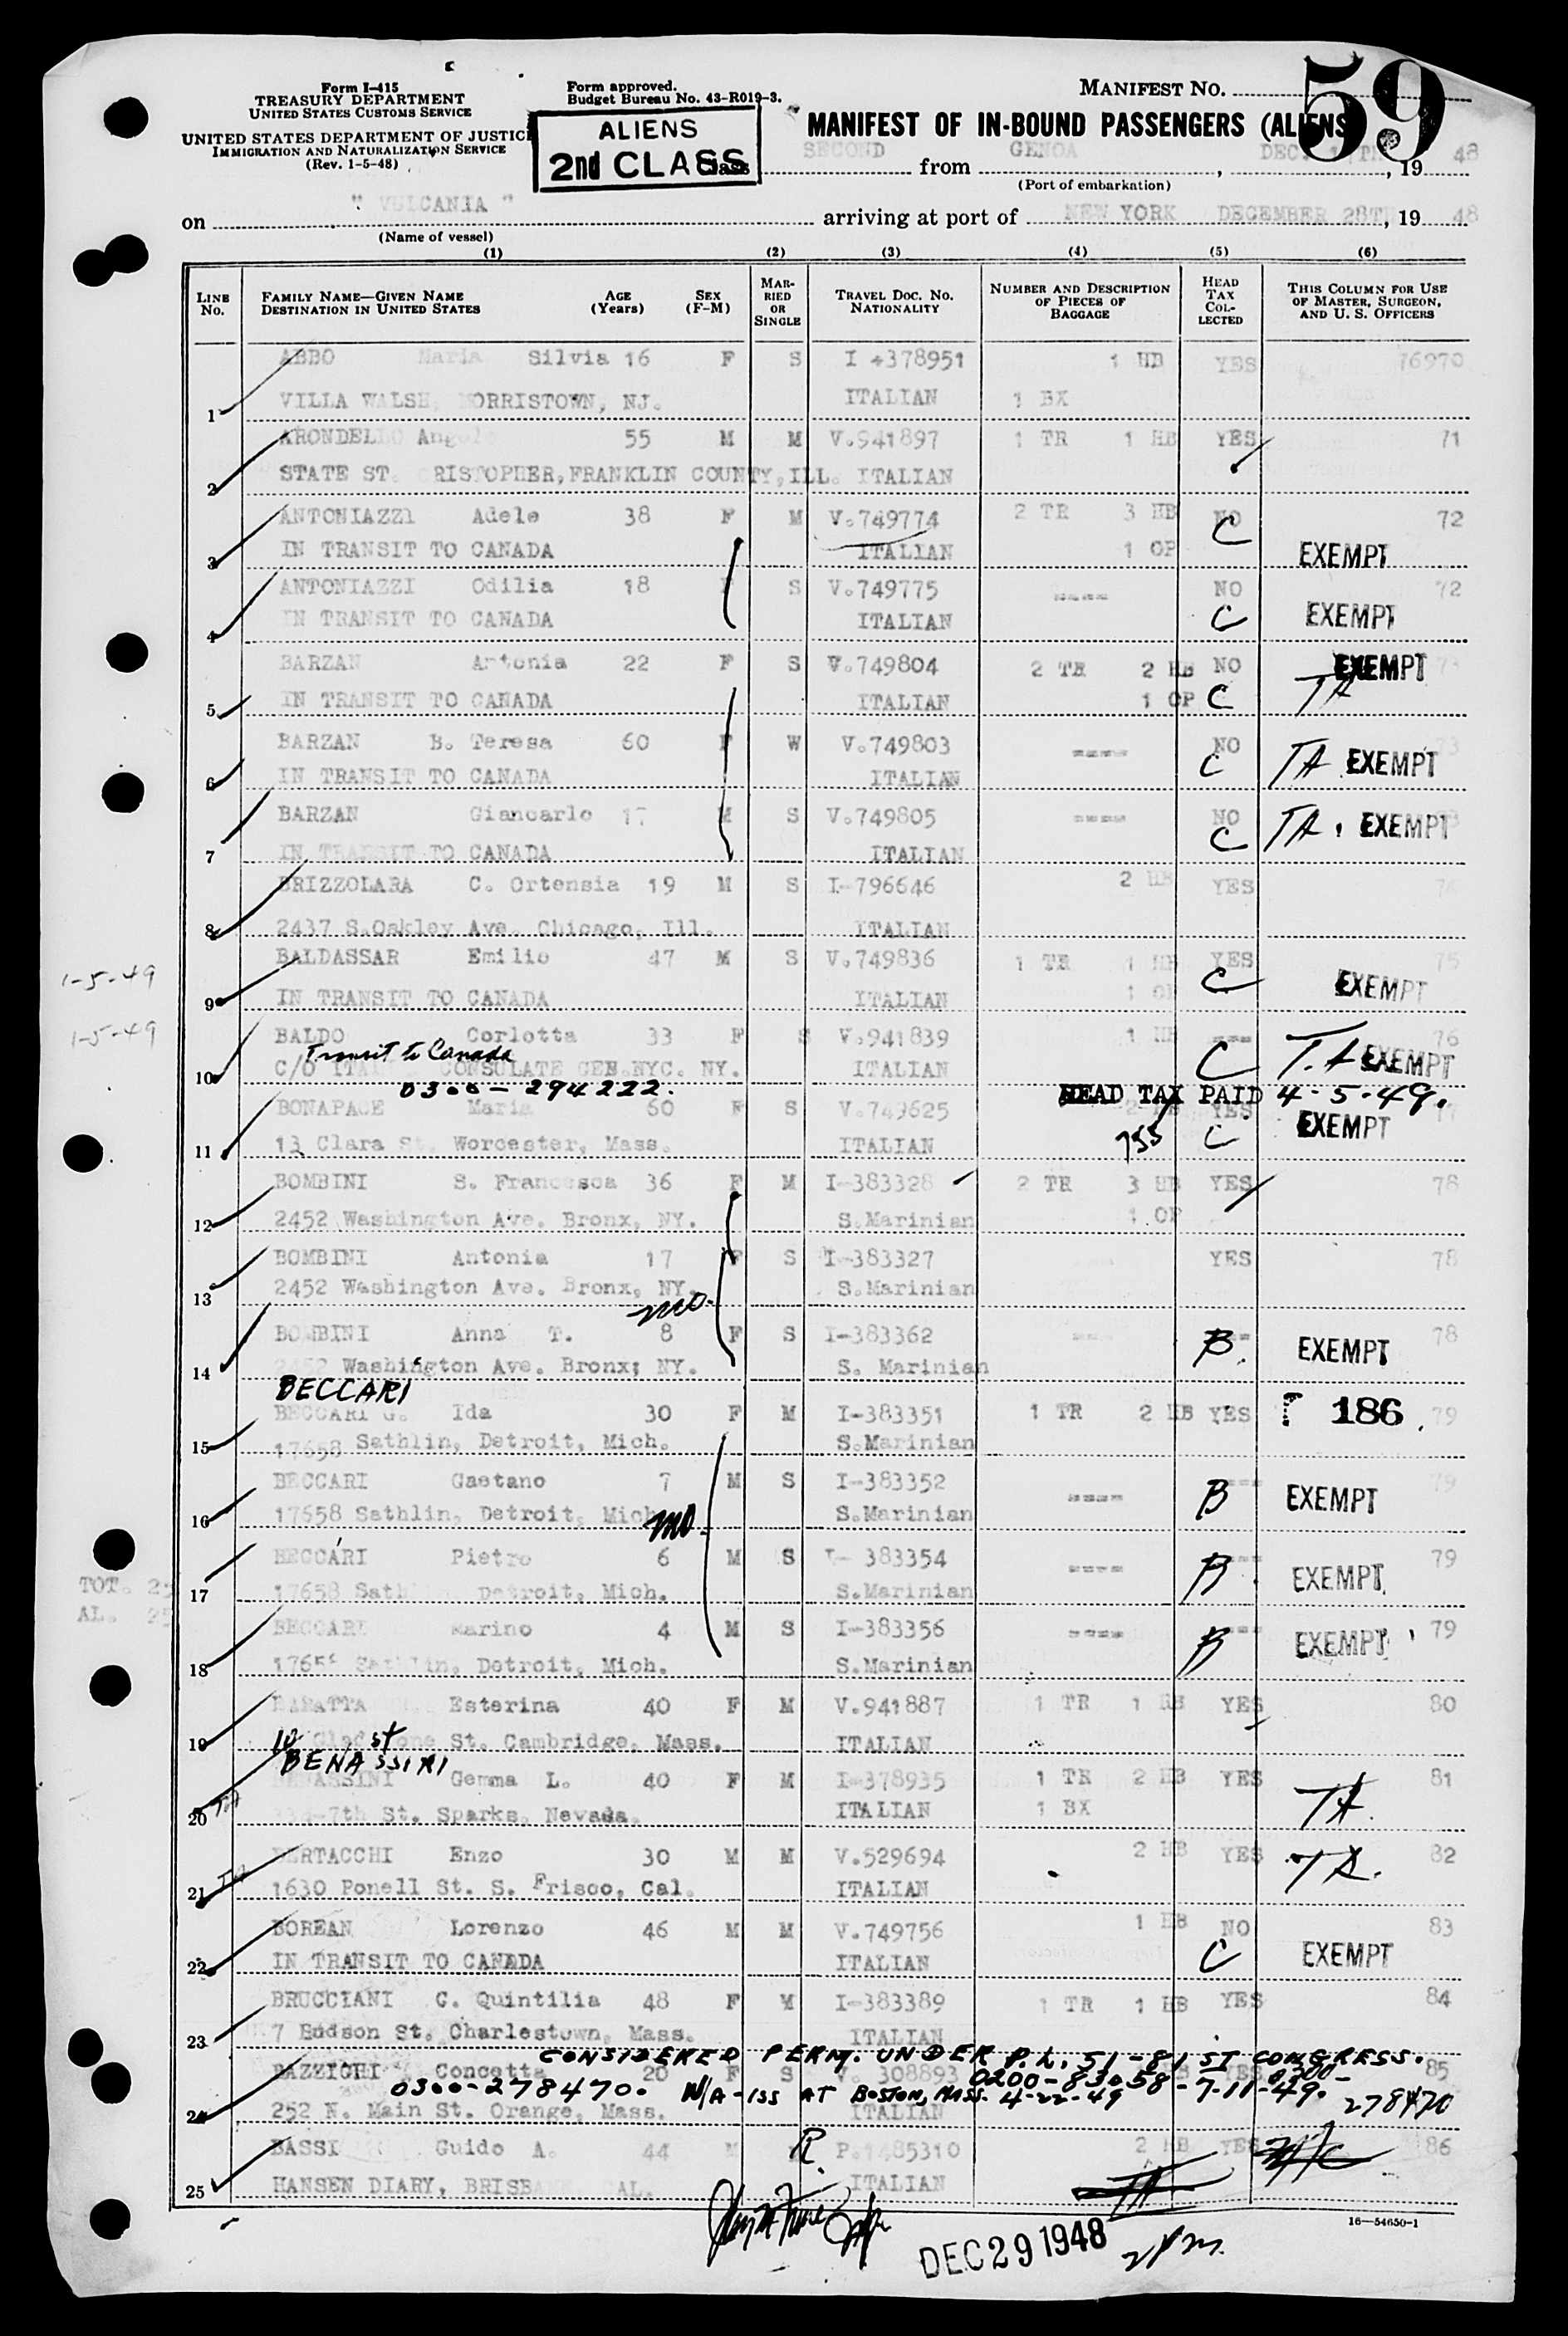 Form I-415
TREASURY DEPARTMENT
UNITED STATES CUSTOMS SERVICE
UNITED STATES DEPARTMENT OF JUSTICE
IMMIGRATION AND NATURALIZATION SERVICE
(Rev. 1-5-48)
Form approved.
Budget Bureau No. 43-R019-3.
ALIENS
2nd CLASS
MANIFEST NO. 59
MANIFEST OF IN-BOUND PASSENGERS (ALIENS)
Class SECOND from GENOA, DEC. 19 48
(Port of embarkation)
on " VULCANIA " arriving at port of NEW YORK DECEMBER 28TH, 19 48
(Name of vessel)
(1) (2) (3) (4) (5) (6)
LINE No. FAMILY NAME—GIVEN NAME DESTINATION IN UNITED STATES AGE (Years) SEX (F-M) MARRIED OR SINGLE TRAVEL DOC. NO. NATIONALITY NUMBER AND DESCRIPTION OF PIECES OF BAGGAGE HEAD TAX COLLECTED THIS COLUMN FOR USE OF MASTER, SURGEON, AND U. S. OFFICERS
ABBO Maria Silvia 16 F S I 378951 1 HB YES 76970
1 VILLA WALSH, MORRISTOWN, NJ. ITALIAN 1 BX
ARONDELLO Angelo 55 M M V.941897 1 TR 1 HB YES 71
2 STATE ST. CRISTOPHER, FRANKLIN COUNTY, ILL. ITALIAN
ANTONIAZZI Adele 38 F M V.749774 2 TR 3 HB NO 72
3 IN TRANSIT TO CANADA ITALIAN 1 OP C EXEMPT
ANTONIAZZI Odilia 18 F S V.749775 ---- NO 72
4 IN TRANSIT TO CANADA ITALIAN C EXEMPT
BARZAN Antonia 22 F S V.749804 2 TR 2 HB NO EXEMPT 73
5 IN TRANSIT TO CANADA ITALIAN 1 OP C TA
BARZAN B. Teresa 60 F W V.749803 ---- NO 73
6 IN TRANSIT TO CANADA ITALIAN C TA EXEMPT
BARZAN Giancarlo 17 M S V.749805 ---- NO
7 IN TRANSIT TO CANADA ITALIAN C TA EXEMPT
BRIZZOLARA C. Ortensia 19 M S I-796646 2 HB YES 74
8 2437 S.Oakley Ave. Chicago, Ill. ITALIAN
BALDASSAR Emilio 47 M S V.749836 1 TR 1 HB YES 75
1-5-49
9 IN TRANSIT TO CANADA ITALIAN 1 OP C EXEMPT
1-5-49
BALDO Corlotta 33 F S V.941839 1 HB --- 76
Transit to Canada
10 C/O ITAL. CONSULATE GEN.NYC. NY. ITALIAN C T.A EXEMPT
0300-294222. HEAD TAX PAID 4-5-49.
BONAPACE Maria 60 F S V.749625 YES 77
11 13 Clara St. Worcester, Mass. ITALIAN 755 C EXEMPT
BOMBINI S. Francesca 36 F M I-383328 2 TR 3 HB YES 78
12 2452 Washington Ave. Bronx, NY. S.Marinian 1 OP
BOMBINI Antonia 17 F S I-383327 YES 78
13 2452 Washington Ave. Bronx, NY. S.Marinian
mo.
BOMBINI Anna T. 8 F S I-383362 --- 78
14 2452 Washington Ave. Bronx; NY. S. Marinian B. EXEMPT
BECCARI
BECCARI G. Ida 30 F M I-383351 1 TR 2 HB YES 186 79
15 17658 Sathlin, Detroit, Mich. S.Marinian
BECCARI Gaetano 7 M S I-383352 ---- --- 79
16 17658 Sathlin, Detroit, Mich. mo. S.Marinian B EXEMPT
BECCARI Pietro 6 M S I- 383354 ---- --- 79
17 17658 Sathlin, Detroit, Mich. S.Marinian B EXEMPT
TOT. 25
AL. 25
BECCARI Marino 4 M S I-383356 ---- --- 79
18 17658 Sathlin, Detroit, Mich. S.Marinian B EXEMPT
Esterina 40 F M V.941887 1 TR 1 HB YES 80
19 10 Gladstone St. Cambridge, Mass. ITALIAN
BENASSINI
BENASSINI Gemma L. 40 F M I-378935 1 TR 2 HB YES 81
20 TA 7th St. Sparks, Nevada. ITALIAN 1 BX TA.
BERTACCHI Enzo 30 M M V.529694 2 HB YES 82
21 TA 1630 Ponell St. S. Frisco, Cal. ITALIAN TA.
BOREAN Lorenzo 46 M M V.749756 1 HB NO 83
22 IN TRANSIT TO CANADA ITALIAN C EXEMPT
BRUCCIANI C. Quintilia 48 F M I-383389 1 TR 1 HB YES 84
23 7 Hudson St. Charlestown, Mass. ITALIAN
CONSIDERED PERM. UNDER P.L. 51-81 ST CONGRESS.
BAZZICHI Concetta 20 F S V. 308893 YES 85
0300-278470. N/A-ISS AT BOSTON, MASS. 4-22-49 0200-83058-7-11-49. 0300-278470
24 252 N. Main St. Orange, Mass. ITALIAN
BASSI Guido A. 44 M R. P.1485310 2 HB YES 86
25 HANSEN DIARY, BRISBANE, CAL. ITALIAN TA
16—54650-1
DEC 29 1948